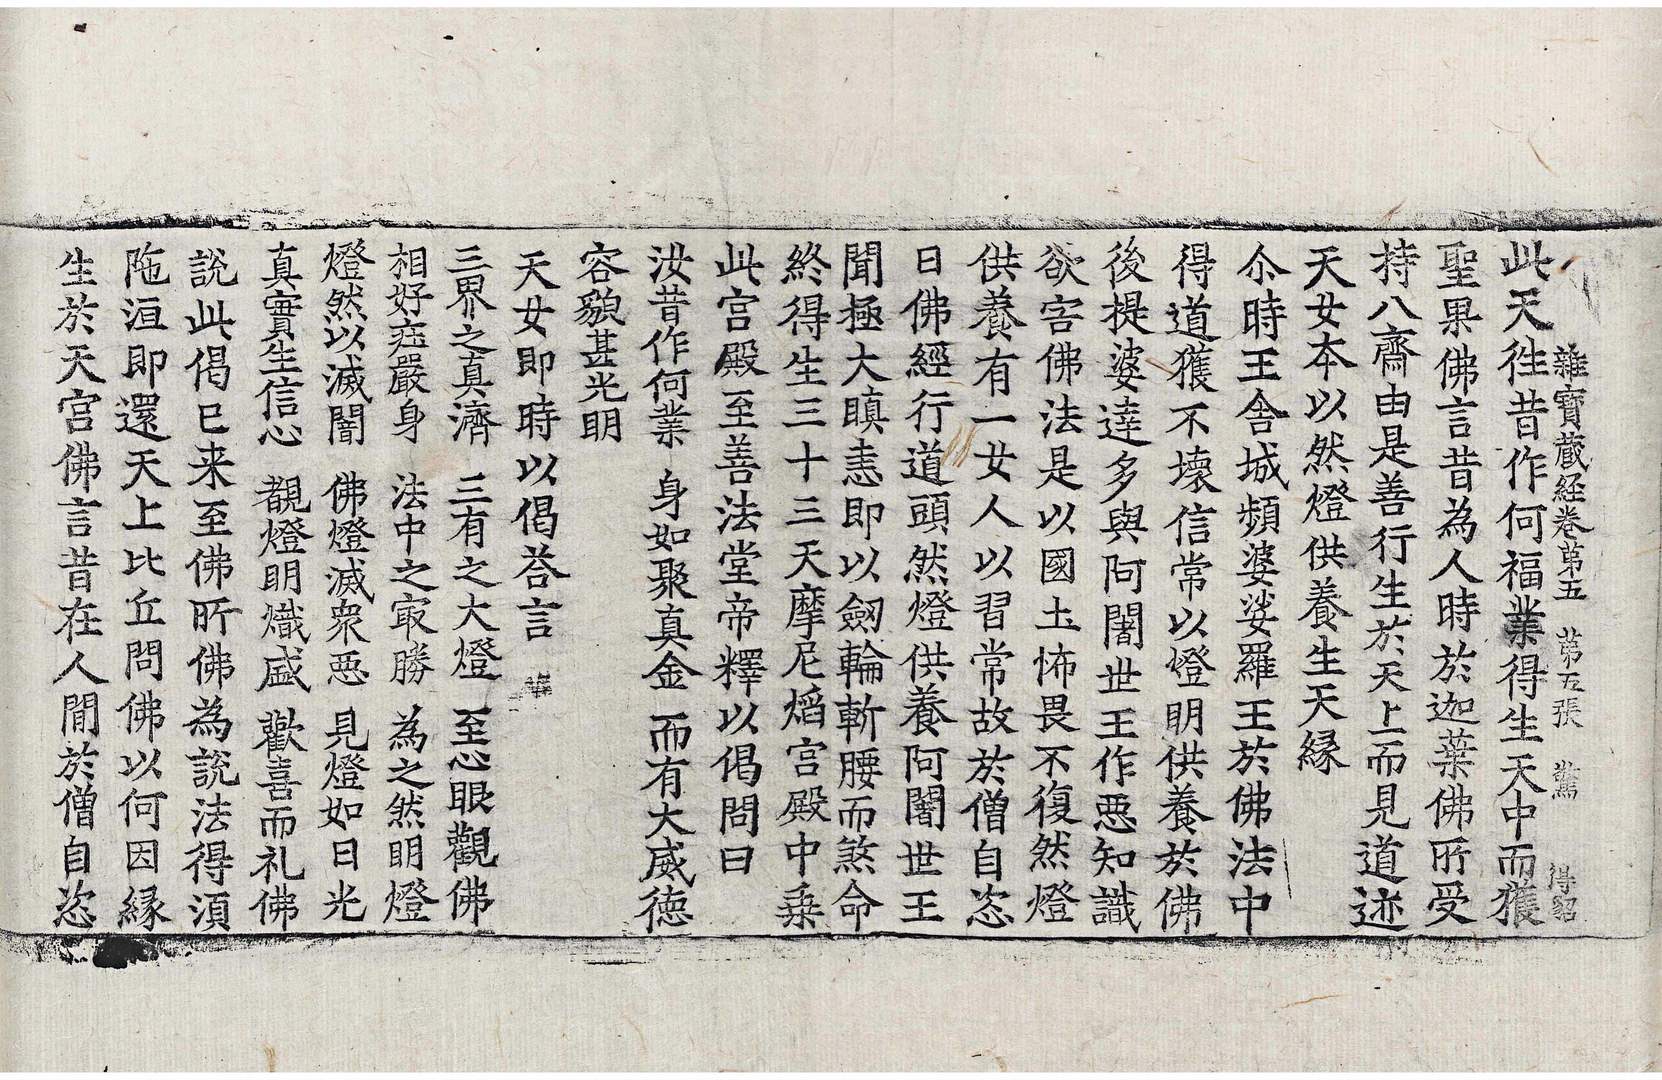 雜寶藏経卷第五　第五張　驚　得貂
此天徃昔作何福業得生天中而獲
聖果佛言昔為人時於迦葉佛所受
持八齋由是善行生於天上而見道迹
天女本以然燈供養生天縁
尒時王舍城頻婆娑羅王於佛法中
得道獲不壞信常以燈明供養於佛
後提婆達多與阿闍世王作惡知識
欲害佛法是以國土怖畏不復然燈
供養有一女人以習常故於僧自恣
日佛經行道頭然燈供養阿闍世王
聞極大瞋恚即以劔輪斬腰而煞命
終得生三十三天摩尼熖宮殿中乗
此宮殿至善法堂帝釋以偈問曰
汝昔作何業　身如聚真金　而有大威德
容貌甚光明
天女即時以偈荅言
三界之真濟　三有之大燈　至心眼觀佛
相好莊嚴身　法中之冣勝　為之然明燈
燈然以滅闇　佛燈滅衆惡　見燈如日光
真實生信心　覩燈明熾盛　歡喜而礼佛
說此偈已来至佛所佛為說法得湏
陁洹即還天上比丘問佛以何因縁
生於天宮佛言昔在人間於僧自恣